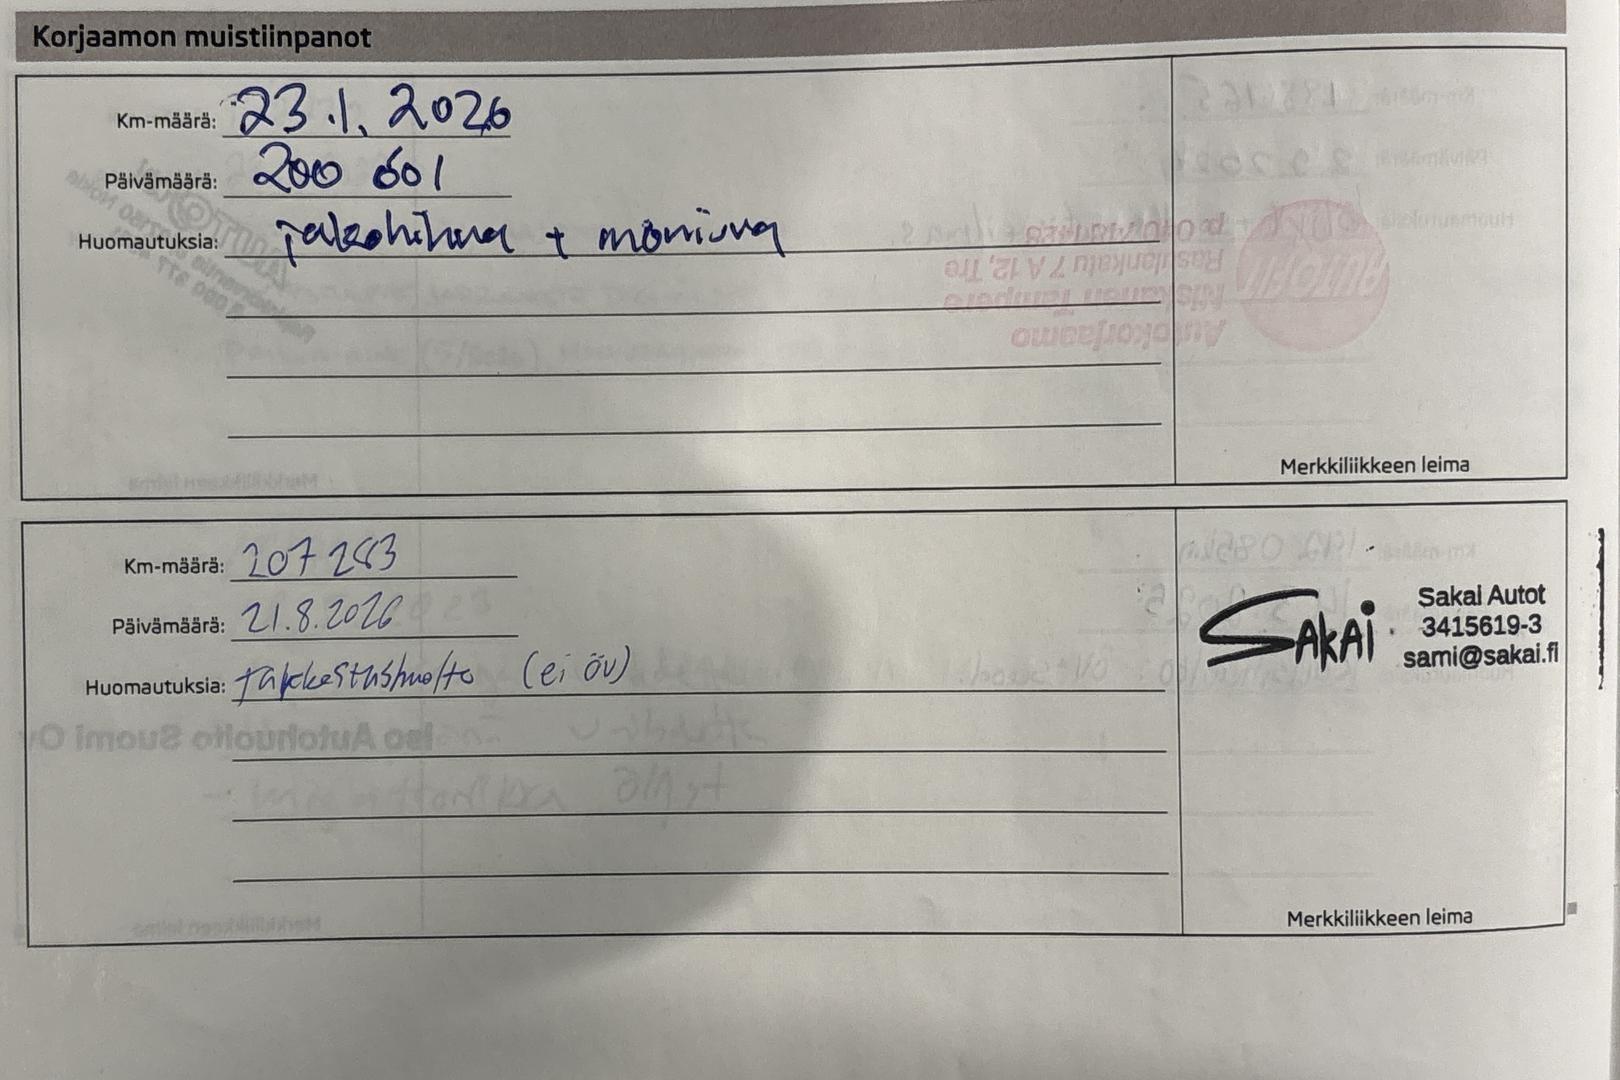 Korjaamon muistiinpanot
Km-määrä: 23.1.2026
Päivämäärä: 200 601
Huomautuksia: jakohihna + moniura
Merkkiliikkeen leima
Km-määrä: 207 283
Päivämäärä: 21.8.2026
Huomautuksia: Tarkastushuolto (ei öv)
SAKAI
Sakai Autot
3415619-3
sami@sakai.fi
Merkkiliikkeen leima